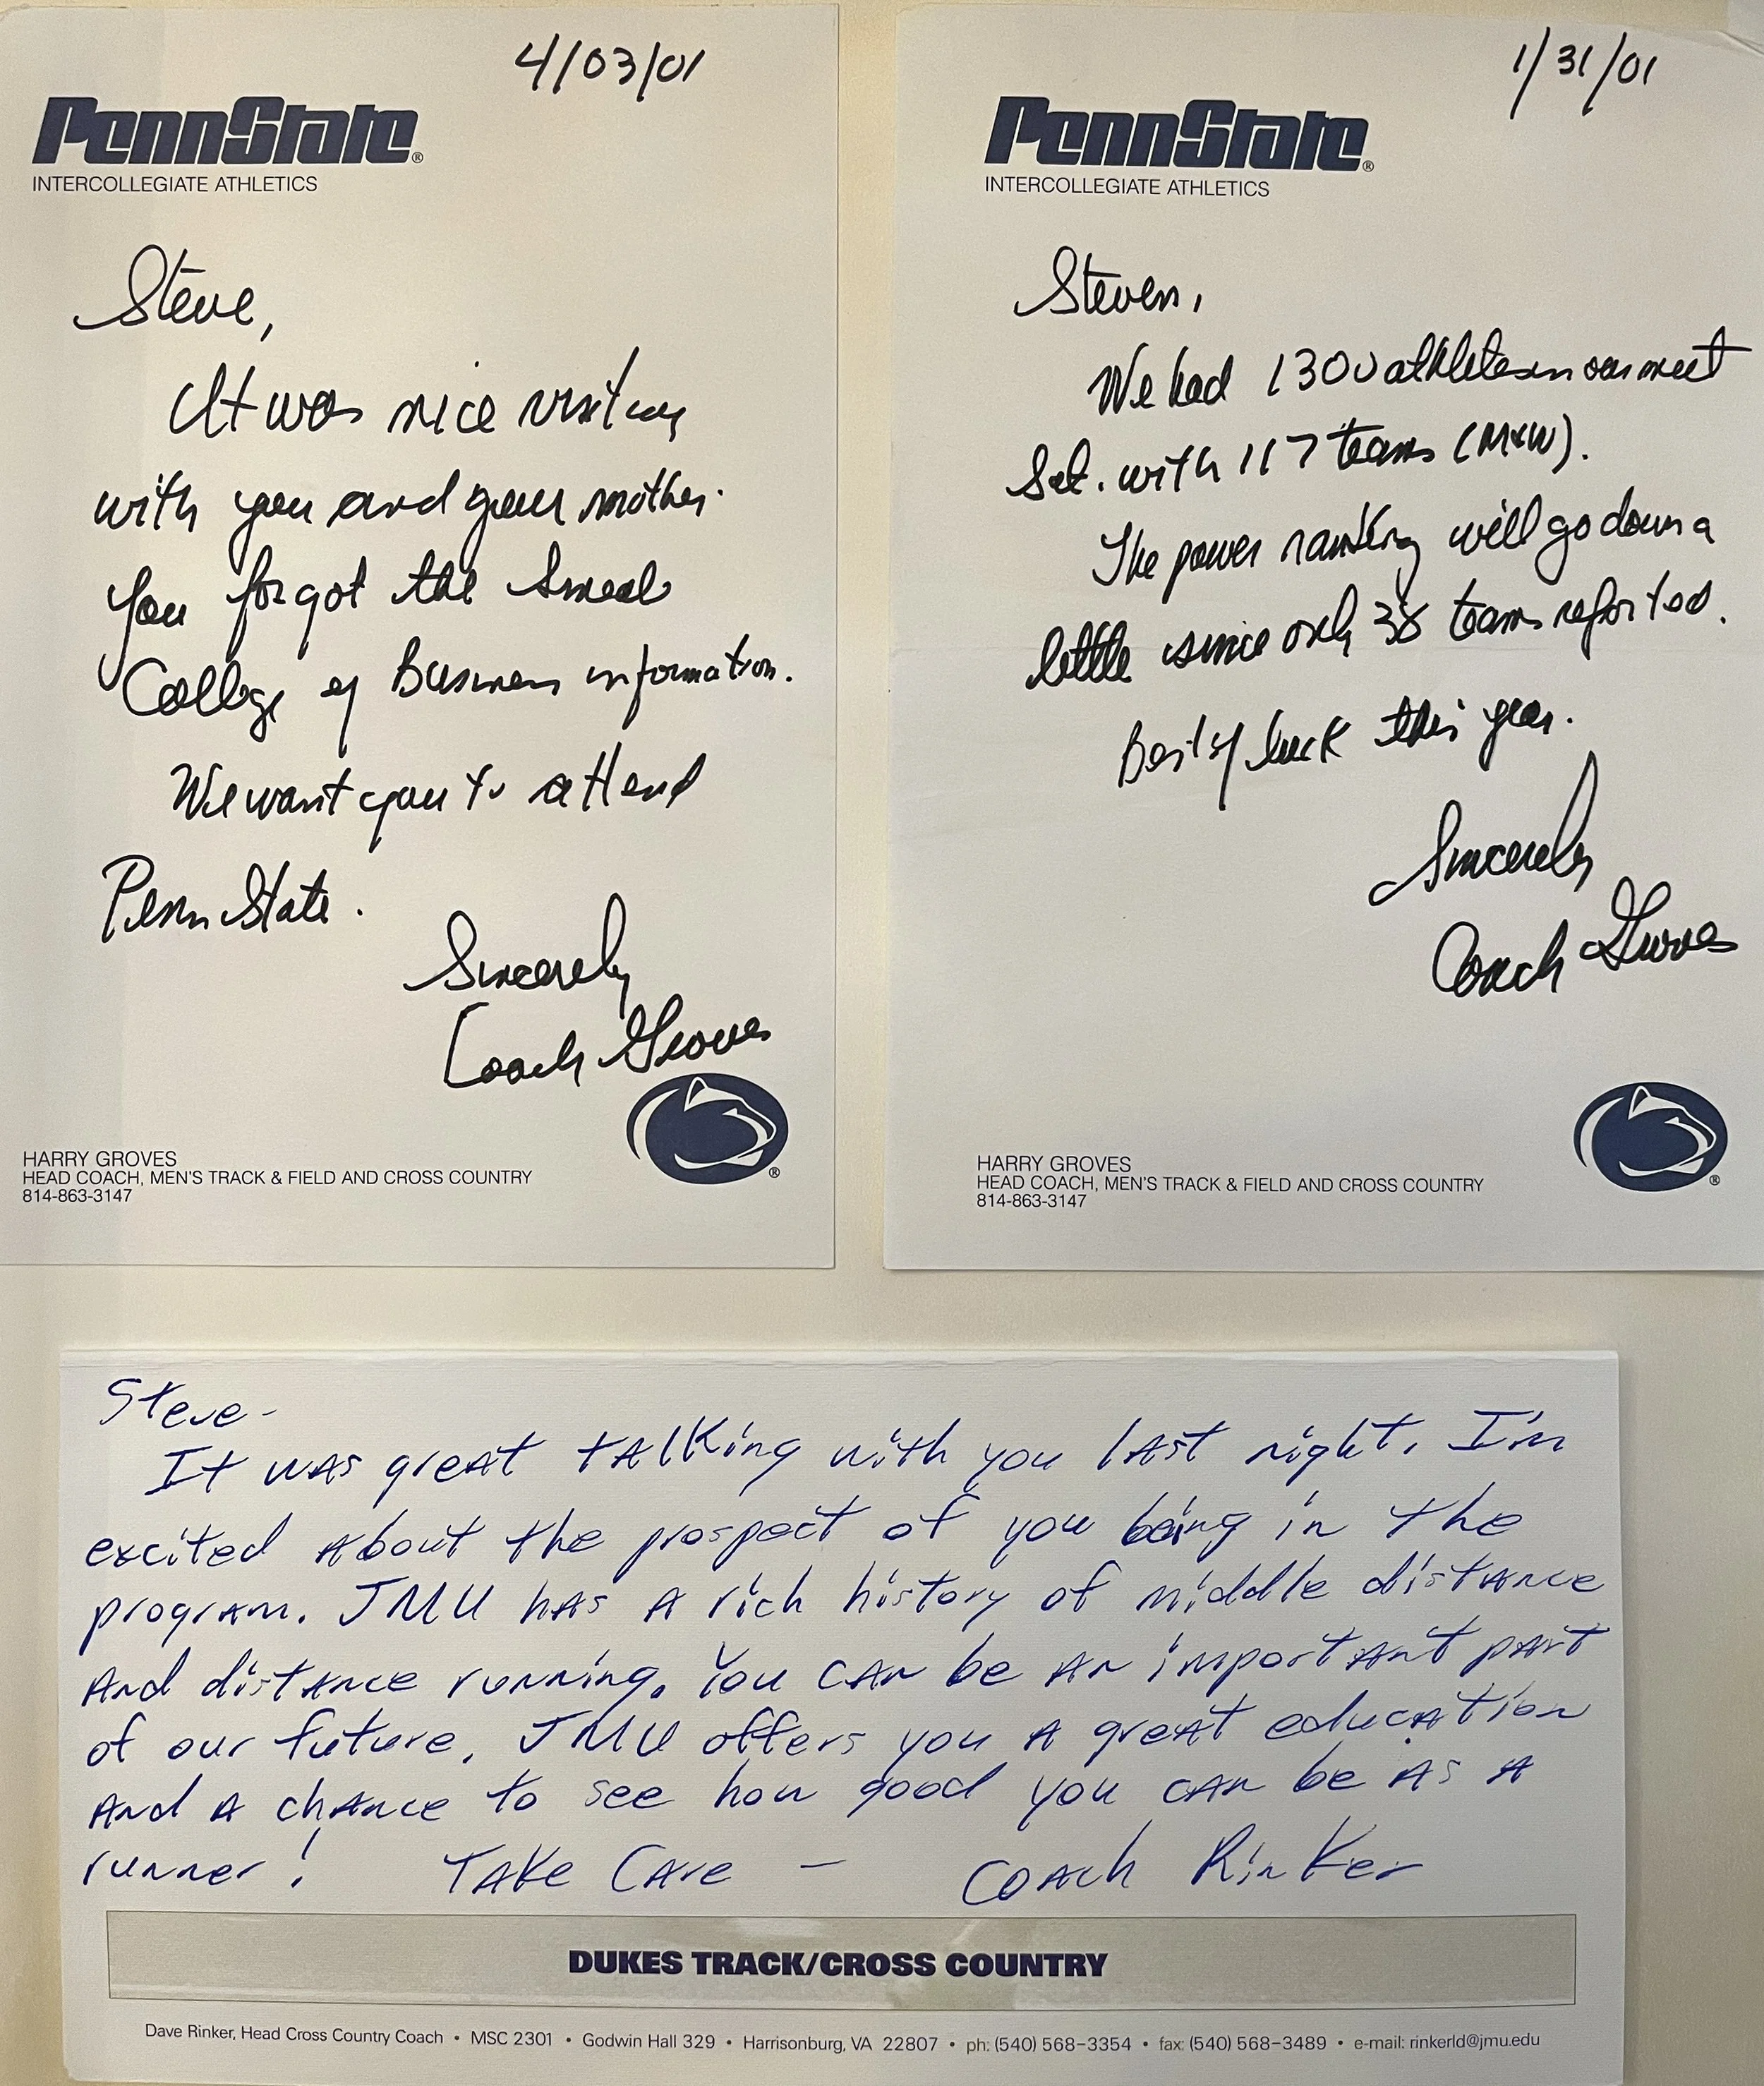 4/03/01
PennState®
INTERCOLLEGIATE ATHLETICS
Steve,
It was nice visiting
with you and your mother.
You forgot the Smeal
College of Business information.
We want you to attend
Penn State.
Sincerely
Coach Groves
HARRY GROVES
HEAD COACH, MEN'S TRACK & FIELD AND CROSS COUNTRY
814-863-3147
®
1/31/01
PennState®
INTERCOLLEGIATE ATHLETICS
Steven,
We had 1300 athletes in our meet
Sat. with 117 teams (M&W).
The power ranking will go down a
little since only 38 teams reported.
Best of luck this year.
Sincerely
Coach Groves
HARRY GROVES
HEAD COACH, MEN'S TRACK & FIELD AND CROSS COUNTRY
814-863-3147
®
Steve-
It was great talking with you last night. I'm
excited about the prospect of you being in the
program. JMU has a rich history of middle distance
and distance running. You can be an important part
of our future. JMU offers you a great education
and a chance to see how good you can be as a
runner! Take Care - Coach Rinker
DUKES TRACK/CROSS COUNTRY
Dave Rinker, Head Cross Country Coach • MSC 2301 • Godwin Hall 329 • Harrisonburg, VA 22807 • ph: (540) 568-3354 • fax: (540) 568-3489 • e-mail: rinkerld@jmu.edu